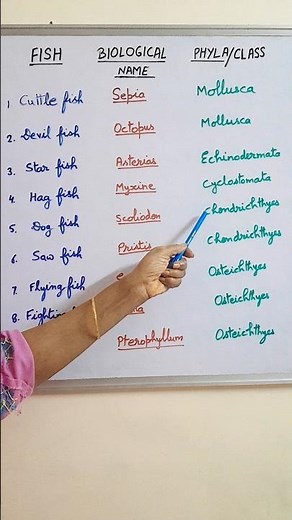 FISH BIOLOGICAL NAME PHYLA/CLASS
1. Cuttle fish Sepia Mollusca
2. Devil fish Octopus Mollusca
3. Star fish Asterias Echinodermata
4. Hag fish Myxine Cyclostomata
5. Dog fish Scoliodon Chondrichthyes
6. Saw fish Pristis Chondrichthyes
7. Flying fish Osteichthyes
8. Osteichthyes
Pterophyllum Osteichthyes